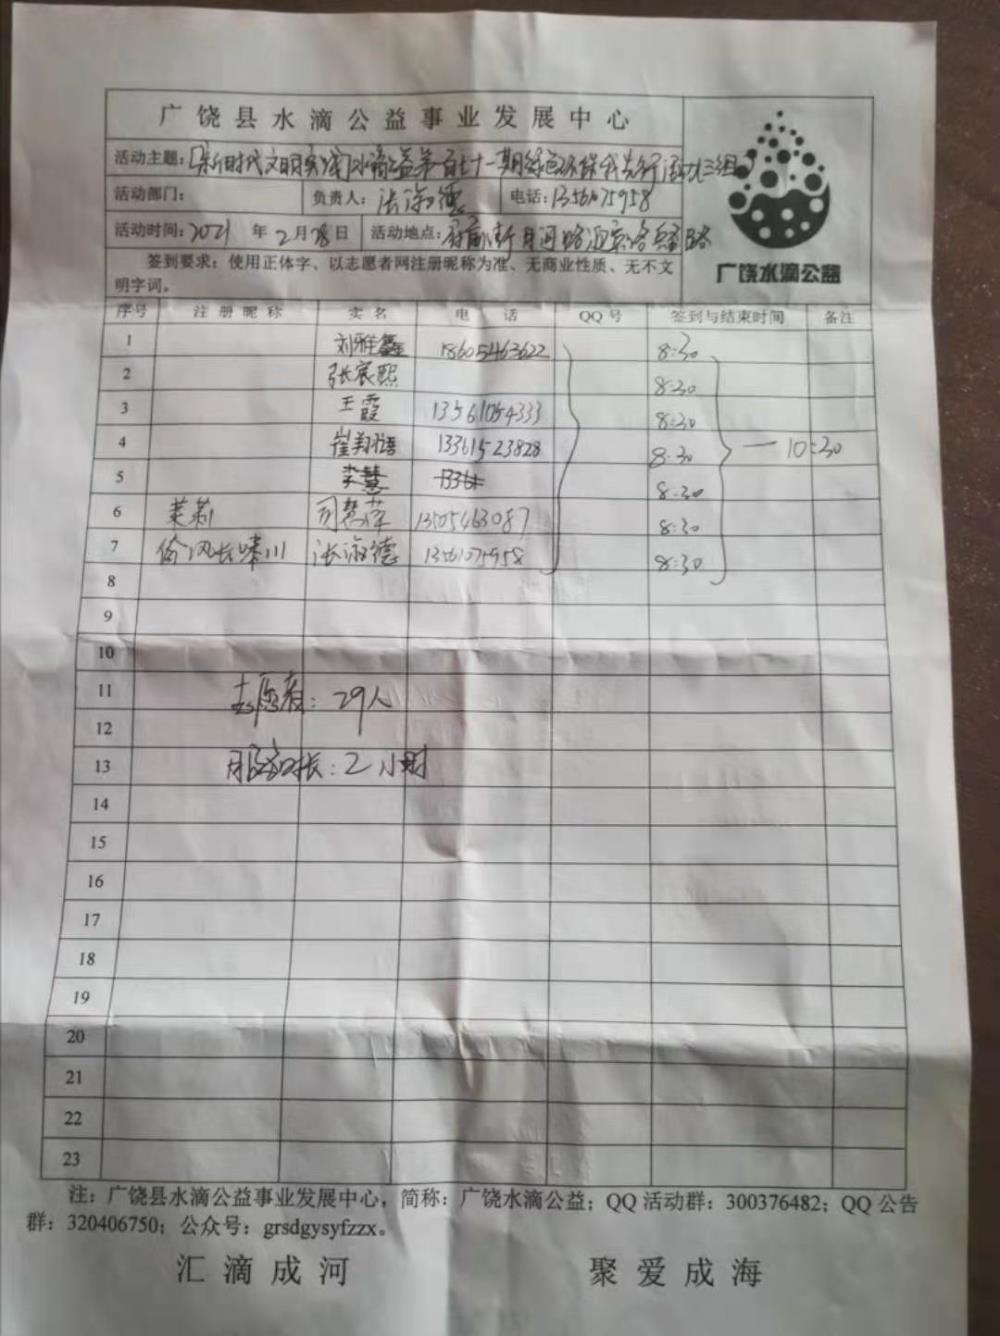 广饶县水滴公益事业发展中心
活动主题：[新时代文明实践]水滴公益第一百七十一期绿色环保我先行活动三组
活动部门： 负责人：张淑德 电话：13561075958
活动时间：2021 年 2 月 28 日 活动地点：
签到要求：使用正体字、以志愿者网注册昵称为准、无商业性质、无不文
明字词。
广饶水滴公益
序号 注册昵称 实名 电话 QQ号 签到与结束时间 备注
1 刘雅鑫 18605463622 8:30
2 张宸熙 8:30
3 王霞 13561054333 8:30
4 崔翔语 13361523828 8:30 — 10:30
5 李慧 1336 8:30
6 茉莉 司慧萍 13505463087 8:30
7 张淑德 13561075958 8:30
8
9
10
11 志愿者：29人
12
13 服务时长：2小时
14
15
16
17
18
19
20
21
22
23
注：广饶县水滴公益事业发展中心，简称：广饶水滴公益；QQ 活动群：300376482；QQ 公告
群：320406750；公众号：grsdgysyfzzx。
汇滴成河 聚爱成海